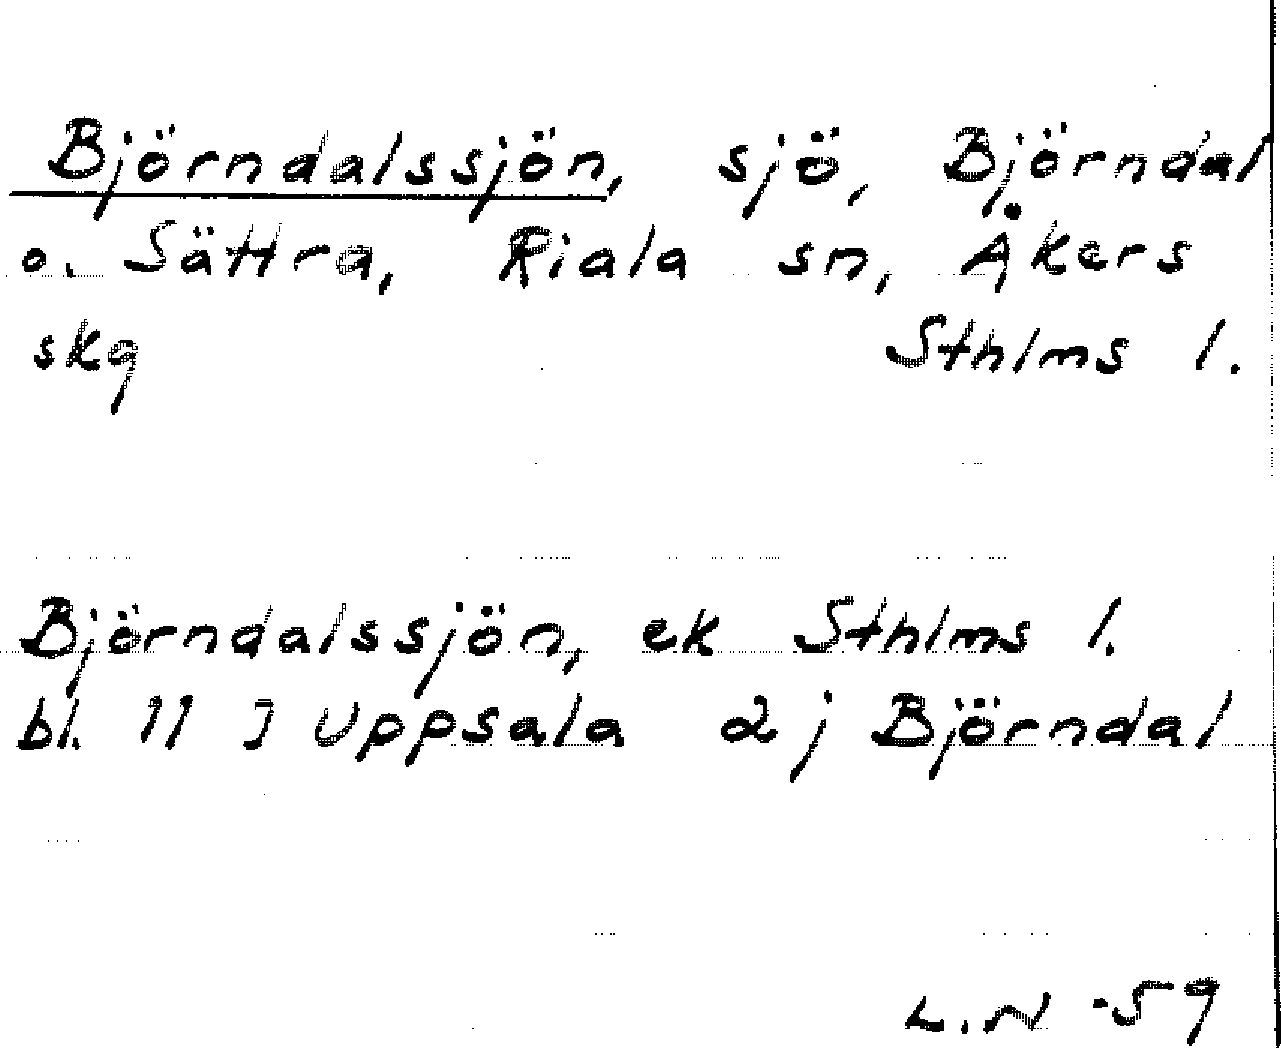 Björndalssjön, sjö, Björndal
o. Sättra, Riala sn, Åkers
skg Sthlms l.
Björndalssjön, ek Sthlms l.
bl. 11 J Uppsala 2 j Björndal
L.N -59